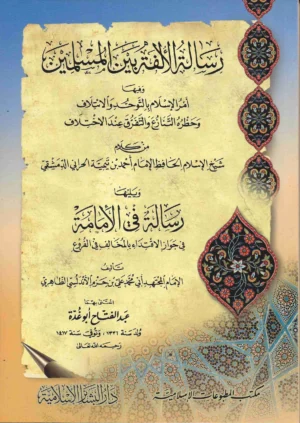 رسالة الألفة بين المسلمين
وفيها
أمر الإسلام بالتوحد والائتلاف
وحظره التنازع والتفرق عند الاختلاف
من كلام
شيخ الإسلام الحافظ الإمام أحمد بن تيمية الحراني الدمشقي
ويليها
رسالة في الإمامة
في جواز الاقتداء بالمخالف في الفروع
تأليف
الإمام المجتهد أبي محمد علي بن حزم الأندلسي الظاهري
اعتنى بهما
عبد الفتاح أبو غدة
ولد سنة ١٣٣٦ وتوفي سنة ١٤١٧
رحمه الله تعالى
مكتب المطبوعات الإسلامية
دار البشائر الإسلامية